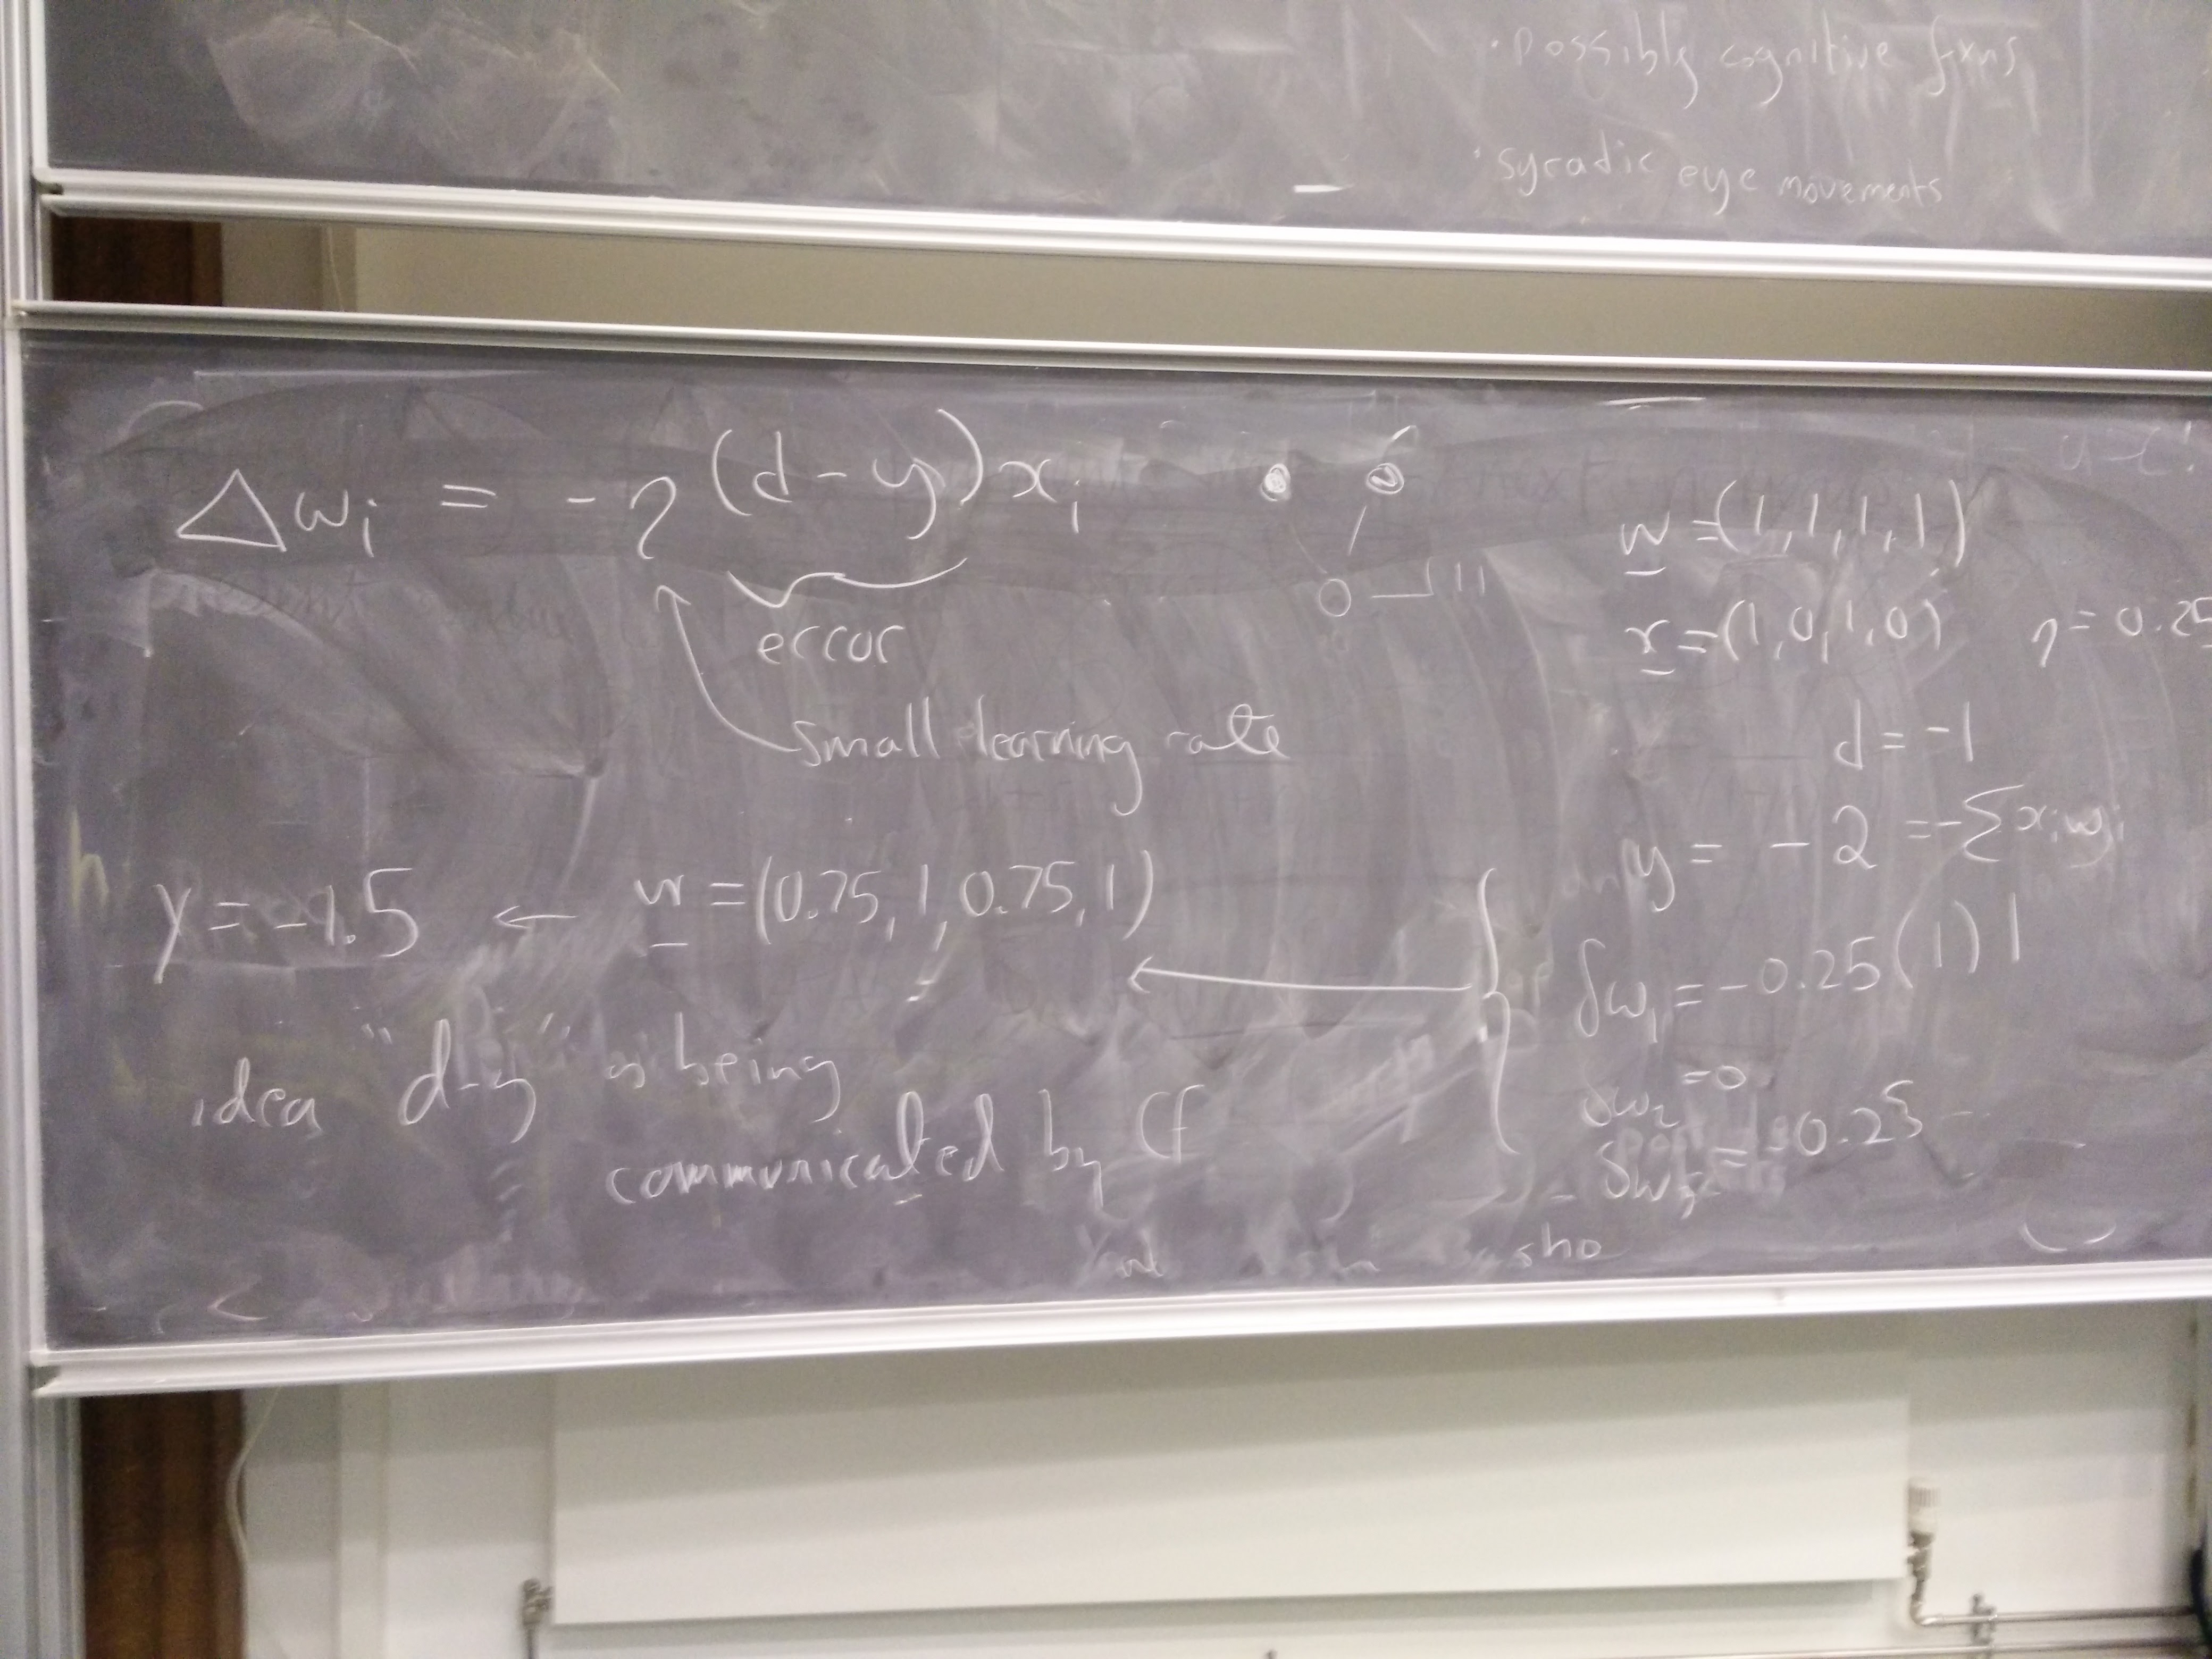 · possibly cognitive fxns
· sycadic eye movements
Δwi = -η(d-y)xi
error
small learning rate
w = (1,1,1,1)
x = (1,0,1,0) η = 0.25
d = -1
y = -2 = -∑xiwi
δw1 = -0.25(1)1
δw2 = 0
δw3 = -0.25
w = (0.75,1,0.75,1)
y = -1.5 ←
idea "d-y" is being
communicated by CF